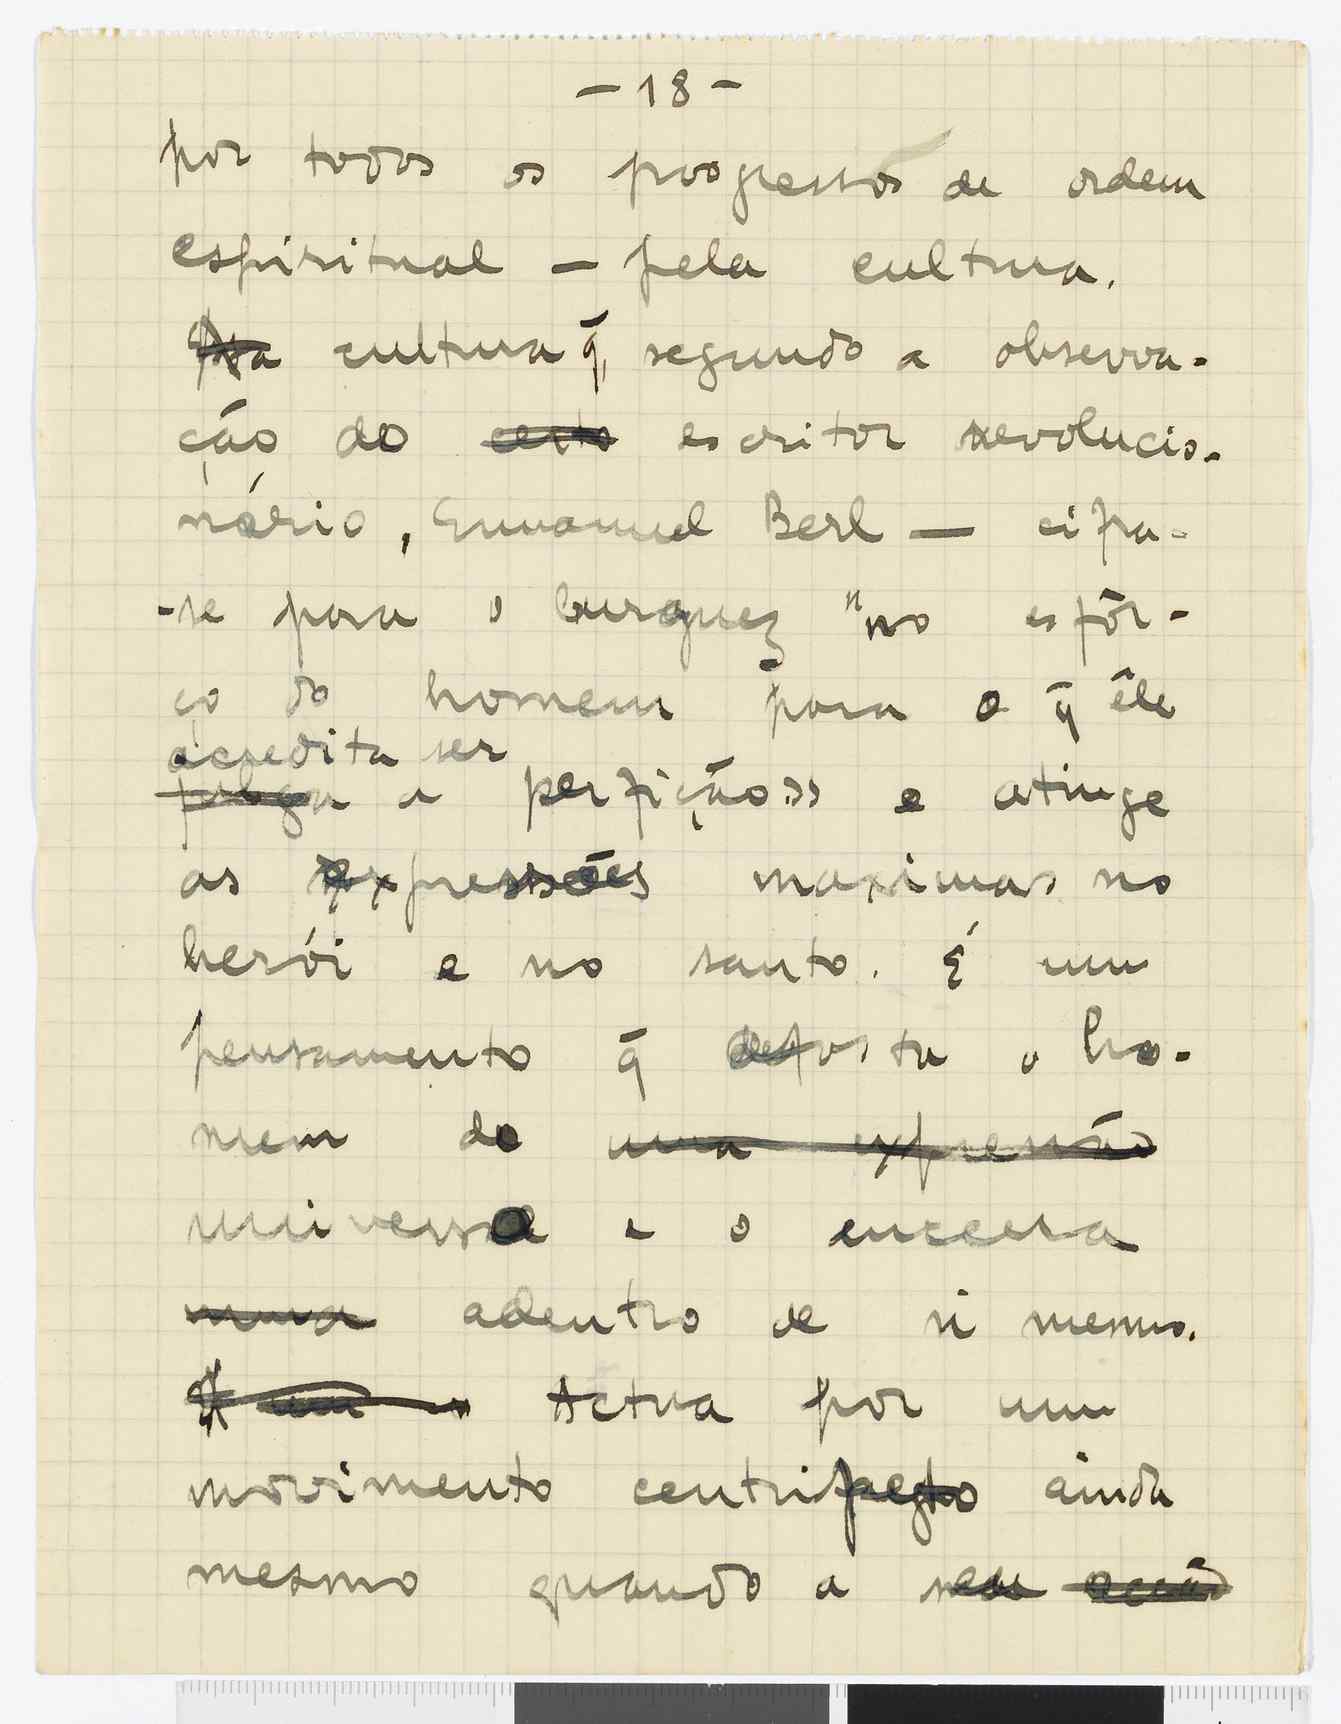 - 18 -
por todos os progressos de ordem
espiritual — pela cultura.
cultura q̄, segundo a observa-
ção do certo escritor revolucio-
nário, Emmanuel Berl — cifra-
-se para o burguez "no esfôr-
ço do homem para o q̄ êle
acredita ser
julga a perfição" e atinge
as expressões maximas no
herói e no santo. É um
pensamento q̄ o ho-
mem do uma expressão
universal e o encerra
numa adentro de si mesmo.
Actua por um
movimento ainda
mesmo quando a seu acção